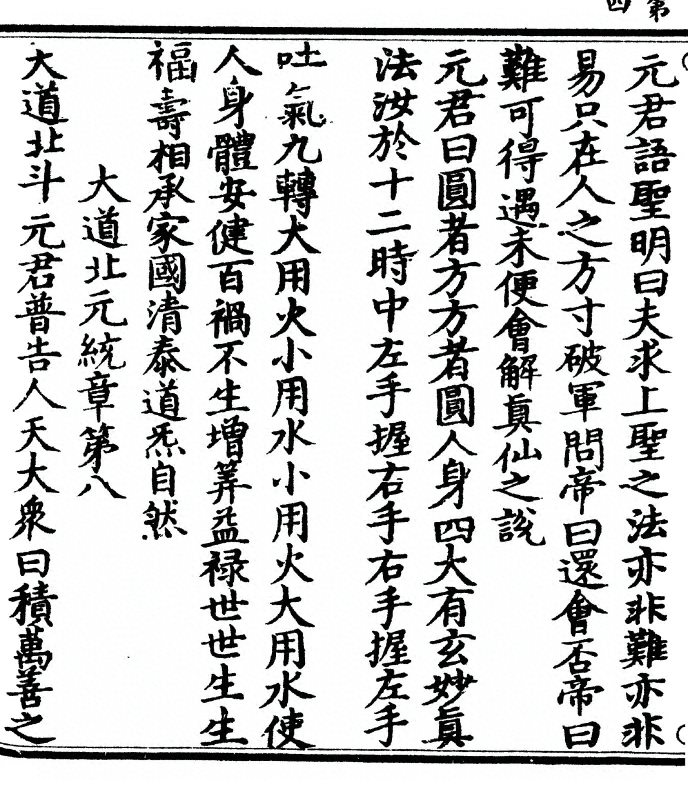 第四
元君語聖明曰夫求上聖之法亦非難亦非
易只在人之方寸破軍問帝曰還會否帝曰
難可得遇未便會解眞仙之說
元君曰圓者方方者圓人身四大有玄妙眞
法汝於十二時中左手握右手右手握左手
吐氣九轉大用火小用水小用火大用水使
人身體安健百禍不生增筭益祿世世生生
福壽相承家國清泰道炁自然
大道北元統章第八
大道北斗元君普告人天大衆曰積萬善之